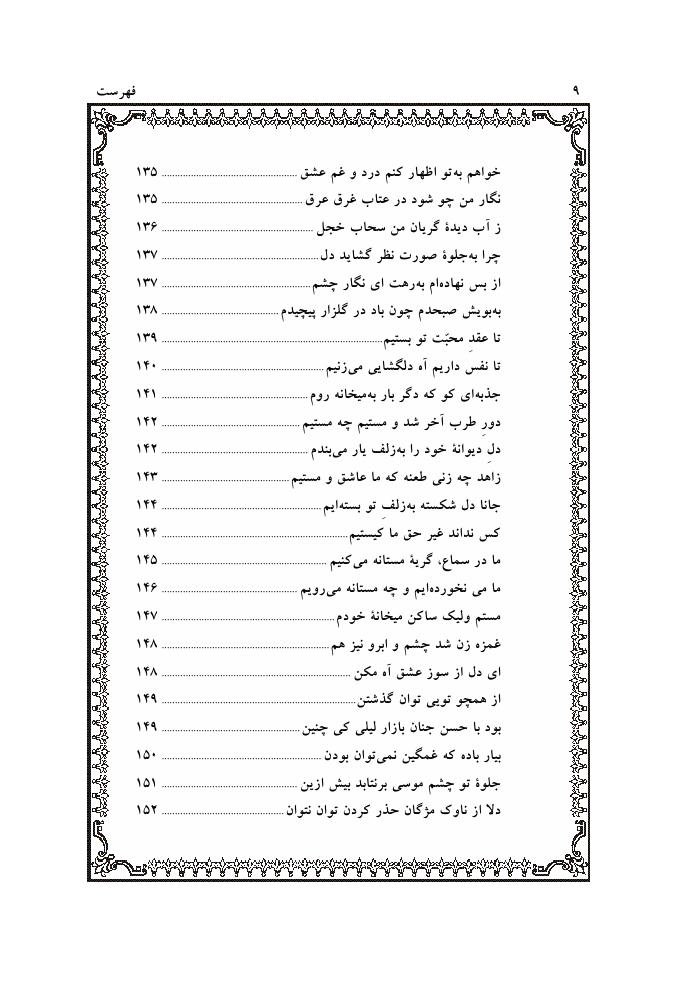 ۹ فهرست
خواهم به‌تو اظهار کنم درد و غم عشق ........ ۱۳۵
نگار من چو شود در عتاب غرق عرق ........ ۱۳۵
ز آب دیدهٔ گریان من سحاب خجل ........ ۱۳۶
چرا به‌جلوهٔ صورت نظر گشاید دل ........ ۱۳۷
از بس نهاده‌ام به‌رهت ای نگار چشم ........ ۱۳۷
به‌بویش صبحدم چون باد در گلزار پیچیدم ........ ۱۳۸
تا عقدِ محبّت تو بستیم ........ ۱۳۹
تا نفس داریم آه دلگشایی می‌زنیم ........ ۱۴۰
جذبه‌ای کو که دگر بار به‌میخانه روم ........ ۱۴۱
دورِ طرب آخر شد و مستیم چه مستیم ........ ۱۴۲
دلِ دیوانهٔ خود را به‌زلف یار می‌بندم ........ ۱۴۲
زاهد چه زنی طعنه که ما عاشق و مستیم ........ ۱۴۳
جانا دل شکسته به‌زلفِ تو بسته‌ایم ........ ۱۴۴
کس نداند غیر حق ما کیستیم ........ ۱۴۴
ما در سماع، گریهٔ مستانه می‌کنیم ........ ۱۴۵
ما می نخورده‌ایم و چه مستانه می‌رویم ........ ۱۴۶
مستم ولیک ساکن میخانهٔ خودم ........ ۱۴۷
غمزه زن شد چشم و ابرو نیز هم ........ ۱۴۸
ای دل از سوز عشق آه مکن ........ ۱۴۸
از همچو تویی توان گذشتن ........ ۱۴۹
بود با حسن جنان بازار لیلی کی چنین ........ ۱۴۹
بیار باده که غمگین نمی‌توان بودن ........ ۱۵۰
جلوهٔ تو چشم موسی برنتابد بیش ازین ........ ۱۵۱
دلا از ناوک مژگان حذر کردن توان نتوان ........ ۱۵۲